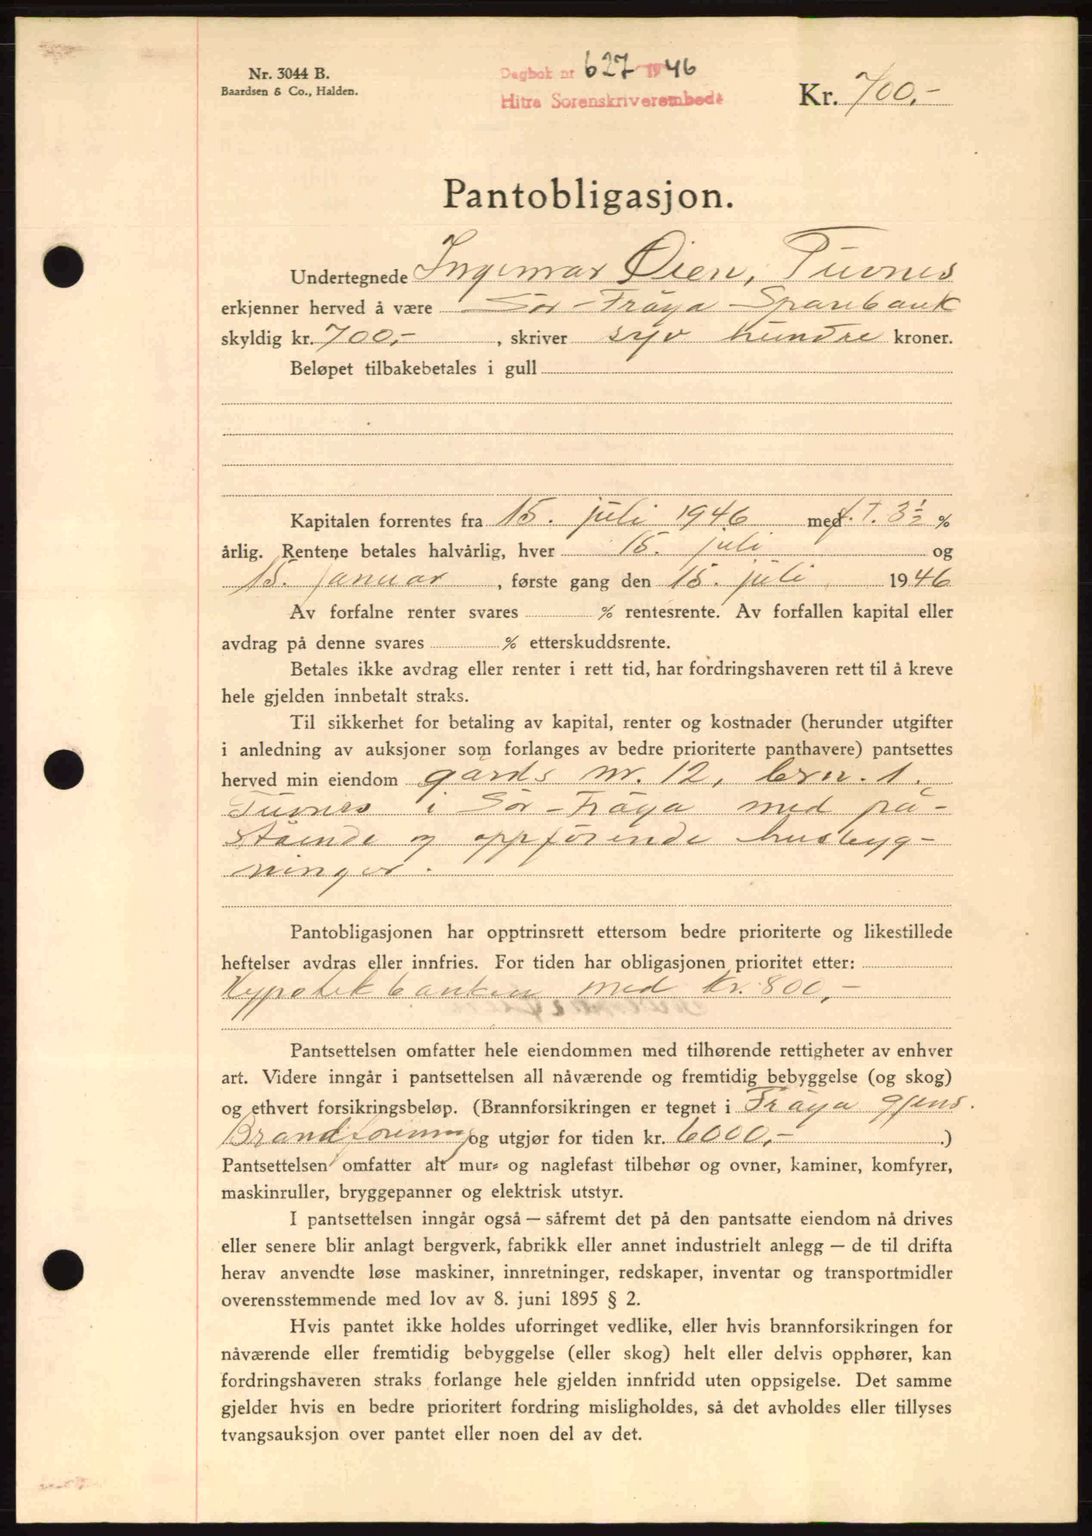 Nr. 3044 B.
Baardsen & Co., Halden.
Dagbok nr 627 1946
Hitra Sorenskriverembede
Kr. 700,-
Pantobligasjon.
Undertegnede Ingemar Øien, Tuvnes
erkjenner herved å være Sör-Fröya Sparebank
skyldig kr. 700,-, skriver syv hundre kroner.
Beløpet tilbakebetales i gull
Kapitalen forrentes fra 15. juli 1946 med f.t. 3 1/2 %
årlig. Rentene betales halvårlig, hver 15. juli og
15. januar, første gang den 15. juli 1946
Av forfalne renter svares % rentesrente. Av forfallen kapital eller
avdrag på denne svares % etterskuddsrente.
Betales ikke avdrag eller renter i rett tid, har fordringshaveren rett til å kreve
hele gjelden innbetalt straks.
Til sikkerhet for betaling av kapital, renter og kostnader (herunder utgifter
i anledning av auksjoner som forlanges av bedre prioriterte panthavere) pantsettes
herved min eiendom gårds nr. 12, brn. 1.
Tuvnes i Sör-Fröya med på-
stående og oppförende husbyg-
ninger.
Pantobligasjonen har opptrinsrett ettersom bedre prioriterte og likestillede
heftelser avdras eller innfries. For tiden har obligasjonen prioritet etter:
Hypotekbanken med kr. 800,-
Pantsettelsen omfatter hele eiendommen med tilhørende rettigheter av enhver
art. Videre inngår i pantsettelsen all nåværende og fremtidig bebyggelse (og skog)
og ethvert forsikringsbeløp. (Brannforsikringen er tegnet i Fröya gjens.
Brandforening og utgjør for tiden kr. 6000,- .)
Pantsettelsen omfatter alt mur- og naglefast tilbehør og ovner, kaminer, komfyrer,
maskinruller, bryggepanner og elektrisk utstyr.
I pantsettelsen inngår også — såfremt det på den pantsatte eiendom nå drives
eller senere blir anlagt bergverk, fabrikk eller annet industrielt anlegg — de til drifta
herav anvendte løse maskiner, innretninger, redskaper, inventar og transportmidler
overensstemmende med lov av 8. juni 1895 § 2.
Hvis pantet ikke holdes uforringet vedlike, eller hvis brannforsikringen for
nåværende eller fremtidig bebyggelse (eller skog) helt eller delvis opphører, kan
fordringshaveren straks forlange hele gjelden innfridd uten oppsigelse. Det samme
gjelder hvis en bedre prioritert fordring misligholdes, så det avholdes eller tillyses
tvangsauksjon over pantet eller noen del av det.